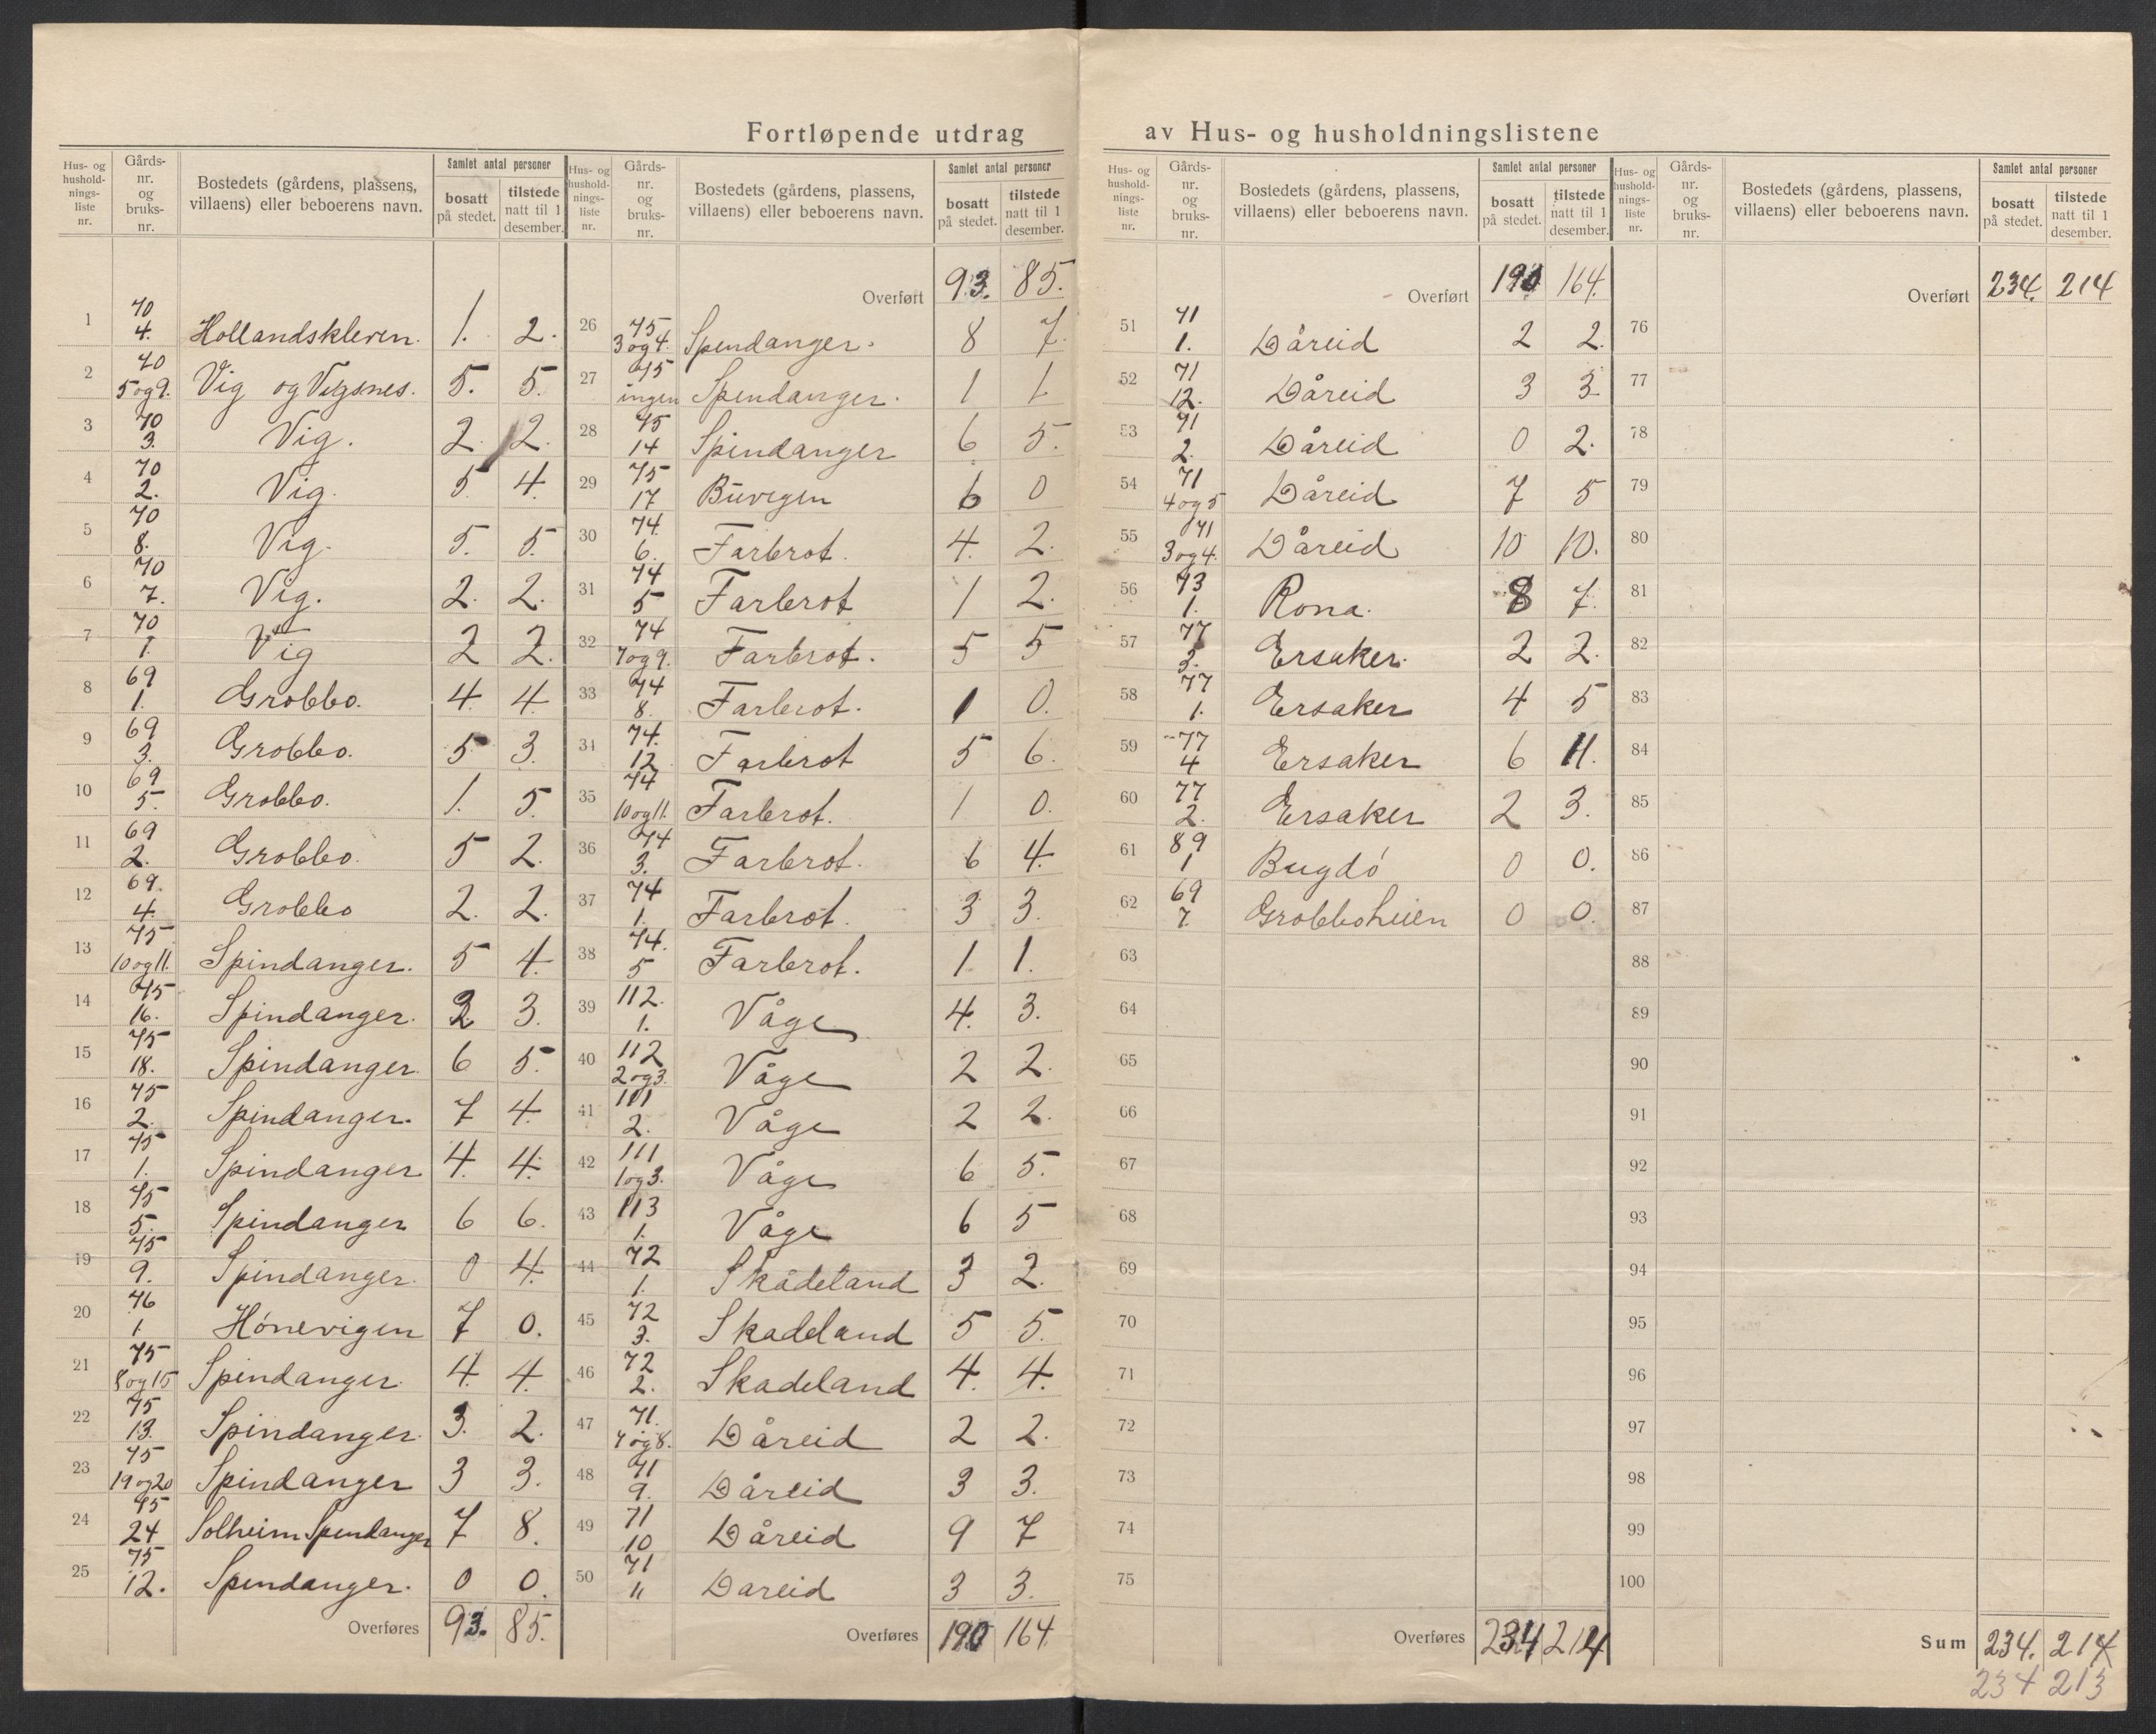 Fortløpende utdrag av Hus- og husholdningslistene
Hus- og husholdningsliste nr. | Gårds-nr. og bruks-nr. | Bostedets (gårdens, plassens, villaens) eller beboerens navn. | Samlet antal personer bosatt på stedet. | tilstede natt til 1 desember.
1 | 70 4. | Hollandskleven. | 1. | 2.
2 | 70 5 og 9. | Vig og Vigsnes. | 5. | 5.
3 | 70 3. | Vig. | 2. | 2.
4 | 70 2. | Vig. | 5 | 4.
5 | 70 8. | Vig. | 5. | 5.
6 | 70 7. | Vig. | 2. | 2.
7 | 70 1. | Vig | 2 | 2.
8 | 69 1. | Grobbo. | 4. | 4.
9 | 69 3. | Grobbo. | 5 | 3.
10 | 69 5. | Grobbo. | 1. | 5.
11 | 69 2. | Grobbo. | 5 | 2.
12 | 69. 4. | Grobbo | 2. | 2.
13 | 75 10 og 11. | Spindanger. | 5 | 4.
14 | 75 16. | Spindanger. | 2 | 3.
15 | 75 18. | Spindanger. | 6 | 5.
16 | 75 2. | Spindanger. | 7 | 4.
17 | 75 1. | Spindanger | 4. | 4.
18 | 75 5. | Spindanger | 6 | 6.
19 | 75 9. | Spindanger. | 0 | 4.
20 | 76 1. | Hónevigen | 7 | 0.
21 | 75 8 og 15 | Spindanger. | 4. | 4.
22 | 75 13. | Spindanger. | 3. | 2.
23 | 75 19 og 20 | Spindanger | 3 | 3.
24 | 75 24 | Solheim Spindanger | 7 | 8.
25 | 75 12. | Spindanger. | 0 | 0.
Overføres | 93. | 85.
Hus- og husholdningsliste nr. | Gårds-nr. og bruks-nr. | Bostedets (gårdens, plassens, villaens) eller beboerens navn. | Samlet antal personer bosatt på stedet. | tilstede natt til 1 desember.
Overført | 93. | 85.
26 | 75 3 og 4. | Spindanger. | 8 | 7.
27 | 75 ingen | Spindanger. | 1 | 1.
28 | 75 14 | Spindanger | 6 | 5.
29 | 75 17 | Buvigen | 6 | 0
30 | 74. 6. | Farbrot. | 4. | 2.
31 | 74 5 | Farbrot | 1 | 2.
32 | 74 7 og 9. | Farbrot. | 5 | 5
33 | 74 8. | Farbrot. | 1 | 0.
34 | 74. 12 | Farbrot | 5 | 6.
35 | 74 10 og 11. | Farbrot. | 1 | 0.
36 | 74 3. | Farbrot. | 6 | 4.
37 | 74 1. | Farbrot. | 3 | 3.
38 | 74. 5 | Farbrot. | 1 | 1.
39 | 112. 1. | Våge | 4. | 3.
40 | 112 2 og 3. | Våge | 2 | 2.
41 | 111 2. | Våge | 2 | 2.
42 | 111 1 og 3. | Våge | 6 | 5.
43 | 113 1. | Våge | 6 | 5
44 | 72 1. | Skådeland | 3 | 2.
45 | 72 3. | Skadeland | 5 | 5.
46 | 72 2. | Skadeland | 4. | 4.
47 | 71. 7 og 8. | Dåreid | 2 | 2.
48 | 71 9. | Dåreid | 3 | 3.
49 | 71 10 | Dåreid | 9 | 7
50 | 71 11 | Dareid | 3 | 3.
Overføres | 190 | 164.
Hus- og husholdningsliste nr. | Gårds-nr. og bruks-nr. | Bostedets (gårdens, plassens, villaens) eller beboerens navn. | Samlet antal personer bosatt på stedet. | tilstede natt til 1 desember.
Overført | 190 | 164.
51 | 71 1. | Dåreid | 2 | 2.
52 | 71 12. | Dåreid | 3 | 3.
53 | 71 2. | Dåreid | 0 | 2.
54 | 71 4 og 5 | Dåreid | 7 | 5
55 | 71 3 og 4. | Dåreid | 10 | 10.
56 | 73 1. | Rona. | 8 | 7.
57 | 77 3. | Ersaker. | 2 | 2.
58 | 77 1. | Ersaker | 4 | 5
59 | 77 4 | Ersaker | 6 | 11.
60 | 77 2. | Ersaker | 2 | 3.
61 | 89 1 | Bugdó | 0 | 0.
62 | 69 7. | Grobboheien | 0 | 0.
63
64
65
66
67
68
69
70
71
72
73
74
75
Overføres | 234 | 214
Hus- og husholdningsliste nr. | Gårds-nr. og bruks-nr. | Bostedets (gårdens, plassens, villaens) eller beboerens navn. | Samlet antal personer bosatt på stedet. | tilstede natt til 1 desember.
Overført | 234. | 214
76
77
78
79
80
81
82
83
84
85
86
87
88
89
90
91
92
93
94
95
96
97
98
99
100
Sum | 234. | 214
234 213